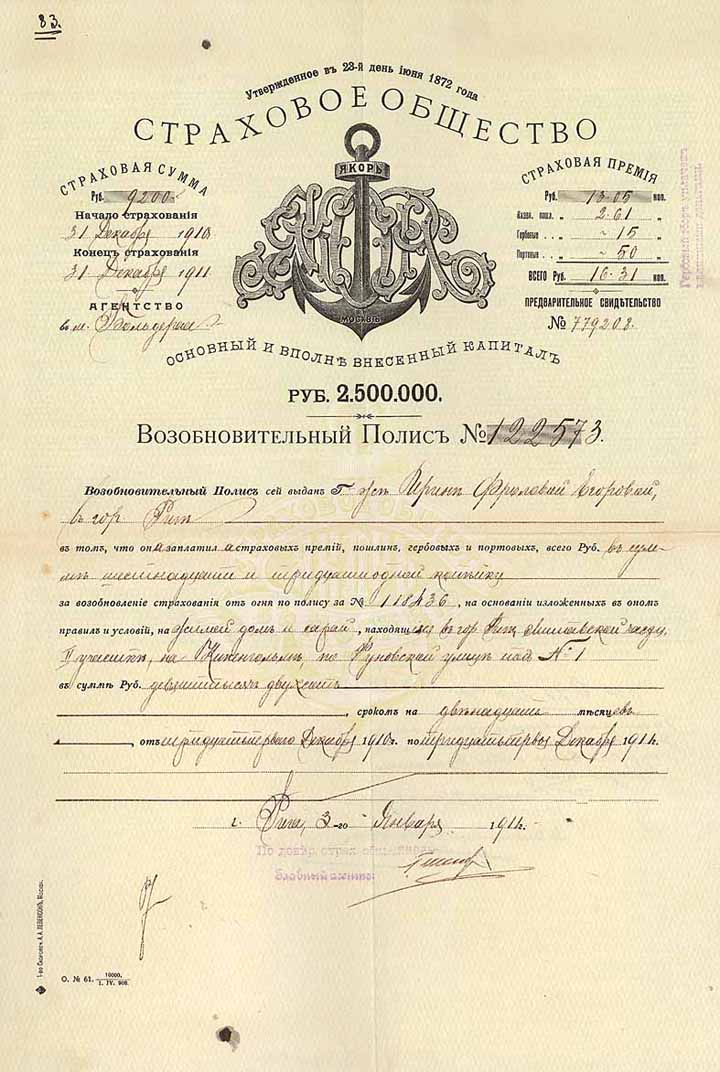 83.
Утвержденное въ 23-й день іюня 1872 года
СТРАХОВОЕ ОБЩЕСТВО
ЯКОРЬ
МОСКВѢ
СТРАХОВАЯ СУММА
Руб. 9200
Начало страхованія
31 Декабря 1910
Конецъ страхованія
31 Декабря 1911
АГЕНТСТВО
в м.
СТРАХОВАЯ ПРЕМІЯ
Руб. 13.05 коп.
Казен. пошл. „ 2.61 „
Гербовые „ 15 „
Портовые „ 50 „
ВСЕГО Руб. 16.31 коп.
ПРЕДВАРИТЕЛЬНОЕ СВИДѢТЕЛЬСТВО
№ 779208.
Гербовый сборъ уплаченъ
ОСНОВНЫЙ И ВПОЛНѢ ВНЕСЕННЫЙ КАПИТАЛЪ
РУБ. 2.500.000.
Возобновительный Полисъ № 122573.
Возобновительный Полисъ сей выданъ Г жѣ Фроловой Егоровой,
въ гор Ригѣ
въ томъ, что она заплатила страховыхъ премій, пошлинъ, гербовыхъ и портовыхъ, всего Руб. въ сум-
мѣ шестнадцати и тридцати одной копѣйки
за возобновленіе страхованія отъ огня по полису за № 118436, на основаніи изложенныхъ въ ономъ
правилъ и условій, на жилой домъ и сарай, находящіеся въ гор Ригѣ, Митавской части,
II участкѣ, на по улицѣ под № 1
въ суммѣ Руб. девять тысячъ двѣсти
, срокомъ на двѣнадцать мѣсяцевъ
, отъ тридцать перваго Декабря 1910 г. по тридцать первое Декабря 1911 г.
г. Рига, 3-го Января 1911 г.
По довѣр. страх. общ.
Главный агентъ
Т-во Скоропеч. А. А. ЛЕВЕНСОНЪ, Москва.
О. № 61. 10000. 1. IV. 908.